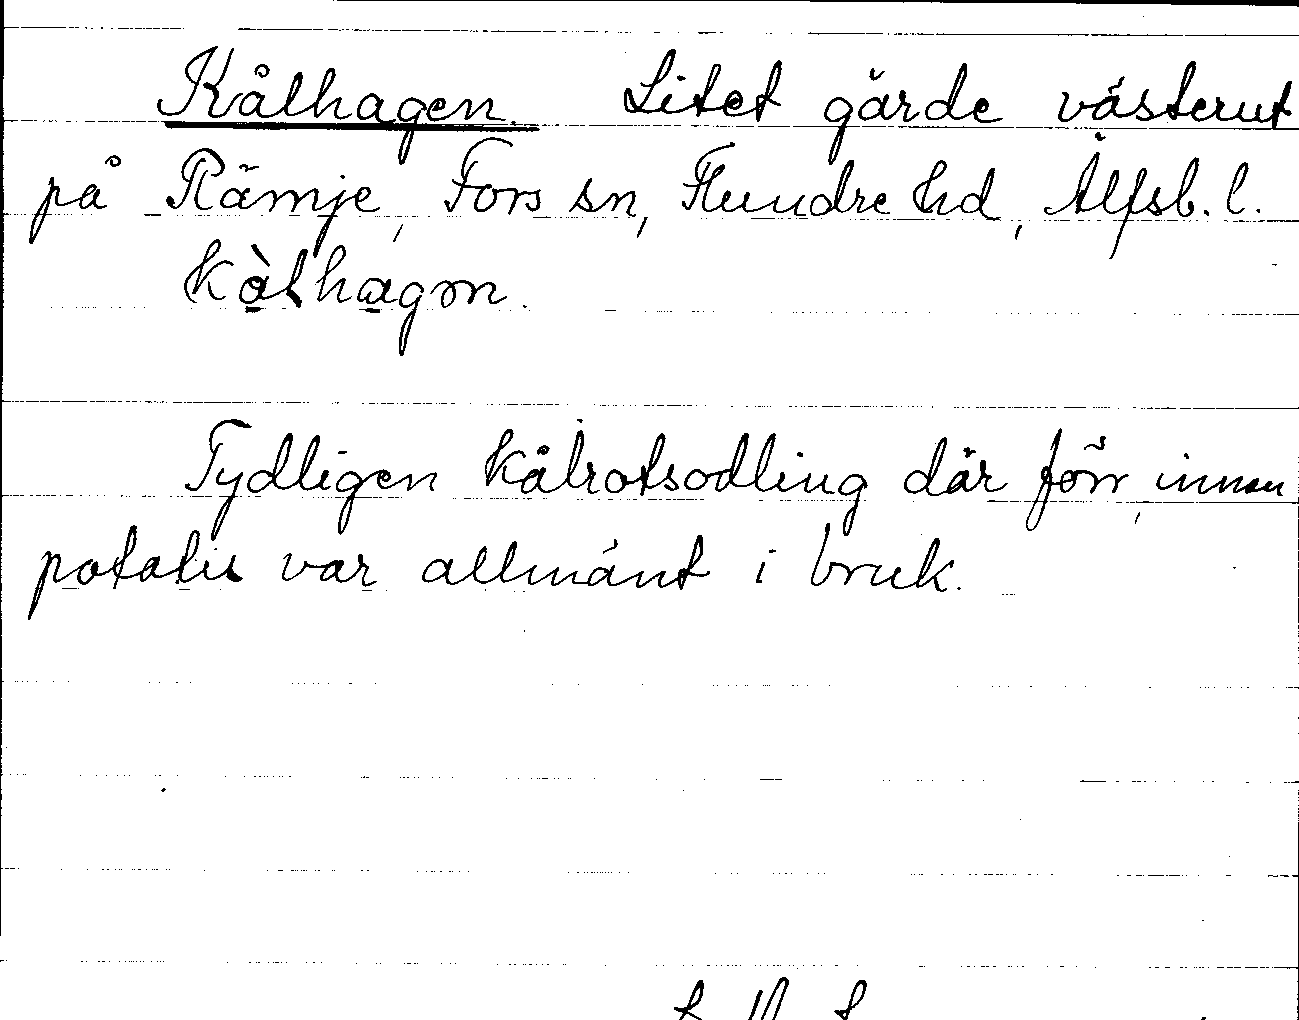 Kålhagen. Litet gärde västerut
på Rämje, Fors sn, Flundre hd, Älfsb. l.
kålhagen.
Tydligen kålrotsodling där förr, innan
potatis var allmänt i bruk.